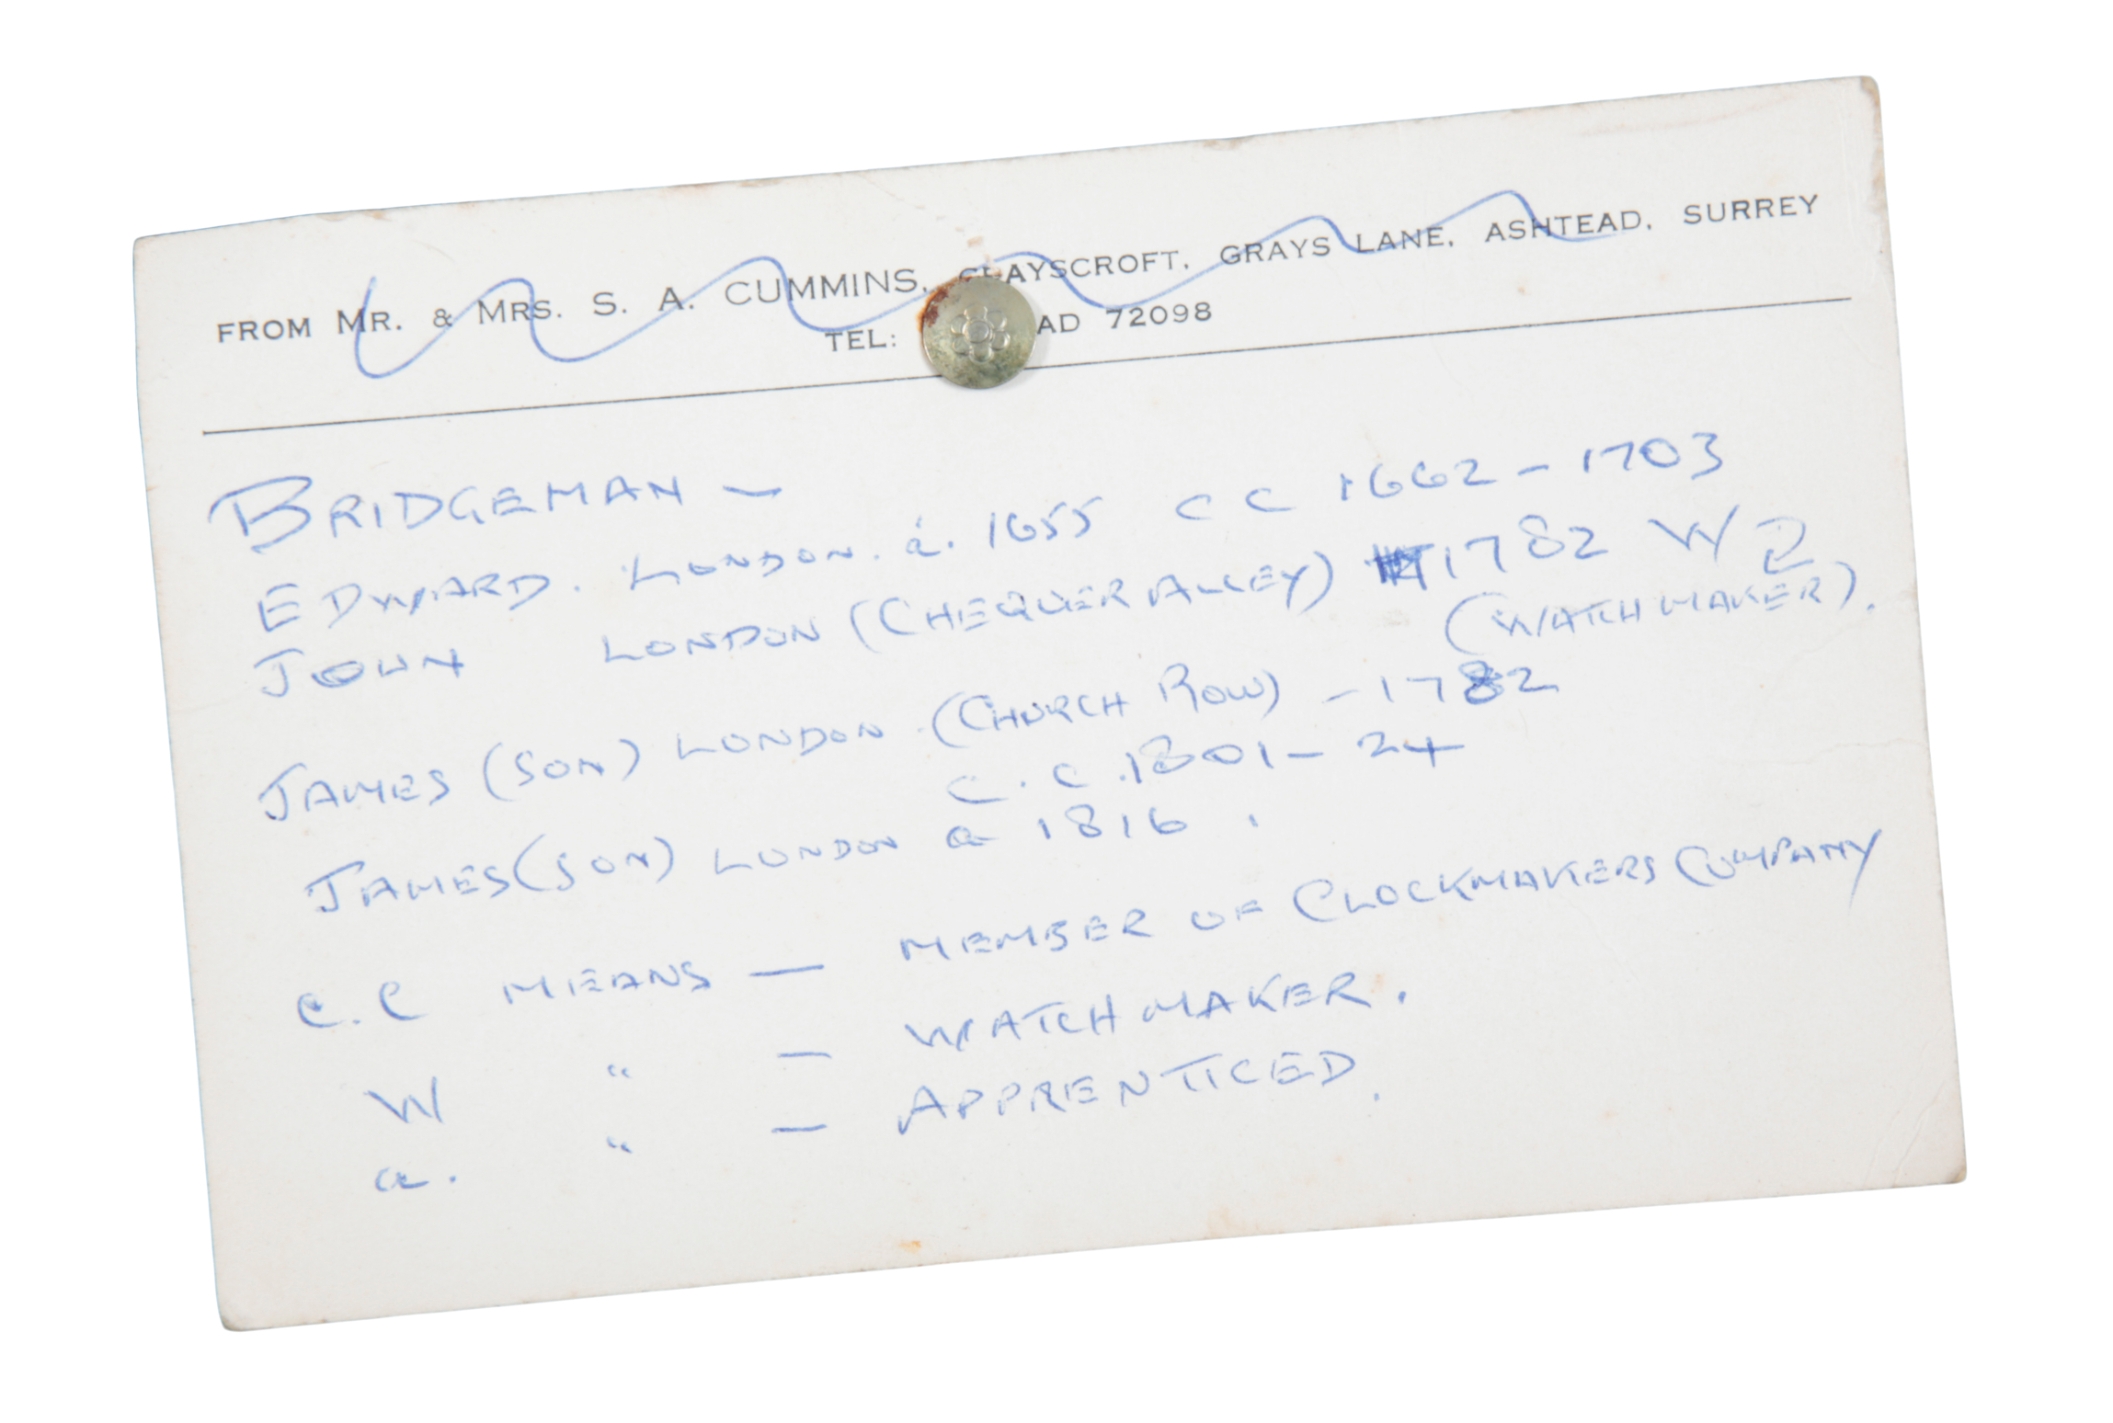 FROM MR. & MRS. S. A. CUMMINS, GRAYSCROFT, GRAYS LANE, ASHTEAD, SURREY
TEL: AD 72098
BRIDGEMAN –
EDWARD. LONDON. a. 1655 CC 1662 – 1703
JOHN LONDON (CHEQUER ALLEY) 1782 W
(WATCHMAKER).
JAMES (SON) LONDON (CHURCH ROW) – 1782
C.C. 1801 – 24
JAMES (SON) LONDON a 1816.
C.C MEANS — MEMBER OF CLOCKMAKERS COMPANY
W " — WATCHMAKER.
a. " — APPRENTICED.